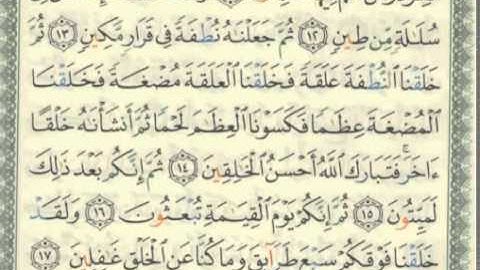 سُلَٰلَةٍ مِّن طِينٍ ١٢ ثُمَّ جَعَلْنَٰهُ نُطْفَةً فِي قَرَارٍ مَّكِينٍ ١٣ ثُمَّ
خَلَقْنَا ٱلنُّطْفَةَ عَلَقَةً فَخَلَقْنَا ٱلْعَلَقَةَ مُضْغَةً فَخَلَقْنَا
ٱلْمُضْغَةَ عِظَٰمًا فَكَسَوْنَا ٱلْعِظَٰمَ لَحْمًا ثُمَّ أَنشَأْنَٰهُ خَلْقًا
ءَاخَرَ ۚ فَتَبَارَكَ ٱللَّهُ أَحْسَنُ ٱلْخَٰلِقِينَ ١٤ ثُمَّ إِنَّكُم بَعْدَ ذَٰلِكَ
لَمَيِّتُونَ ١٥ ثُمَّ إِنَّكُمْ يَوْمَ ٱلْقِيَٰمَةِ تُبْعَثُونَ ١٦ وَلَقَدْ
خَلَقْنَا فَوْقَكُمْ سَبْعَ طَرَآئِقَ وَمَا كُنَّا عَنِ ٱلْخَلْقِ غَٰفِلِينَ ١٧